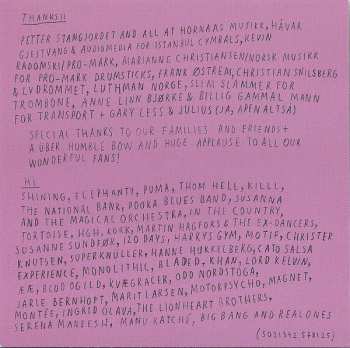 THANKS!!
PETTER STANGJORDET AND ALL AT HORNAAS MUSIKK, HÅVAR
GJEITVANG & AUDIOMEDIA FOR ISTANBUL CYMBALS, KEVIN
RADOMSKI/PRO-MARK, MARIANNE CHRISTIANSEN/NORSK MUSIKK
FOR PRO-MARK DRUMSTICKS, FRANK ØSTREM, CHRISTIAN SNILSBERG
& LYDROMMET, LUTHMAN NORGE, SLIM SLAMMER FOR
TROMBONE, ANNE LINN BJØRKE & BILLIG GAMMAL MANN
FOR TRANSPORT + GARY LESS & JULIUS (JA, APENALTSÅ)
SPECIAL THANKS TO OUR FAMILIES AND FRIENDS +
A ÜBER HUMBLE BOW AND HUGE APPLAUSE TO ALL OUR
WONDERFUL FANS!
HI
SHINING, ELEPHANT9, PUMA, THOM HELL, KILLL,
THE NATIONAL BANK, POOKA BLUES BAND, SUSANNA
AND THE MAGICAL ORCHESTRA, IN THE COUNTRY,
TORTOISE, HGH, KORK, MARTIN HAGFORS & THE EX-DANCERS,
SUSANNE SUNDFØR, 120 DAYS, HARRYS GYM, MOTIF, CHRISTER
KNUTSEN, SUPERKNULLER, HANNE HUKKELBERG, CATO SALSA
EXPERIENCE, MONOLITHIC, BLADED, KHAN, LORD KELVIN,
ÆÆ, BLOD OG ILD, KVÆGRACER, ODD NORDSTOGA,
JARLE BERNHOFT, MARIT LARSEN, MOTORPSYCHO, MAGNET,
MONTÉE, INGRID OLAVA, THE LIONHEART BROTHERS,
SERENA MANEESH, MANU KATCHÉ, BIG BANG AND REAL ONES